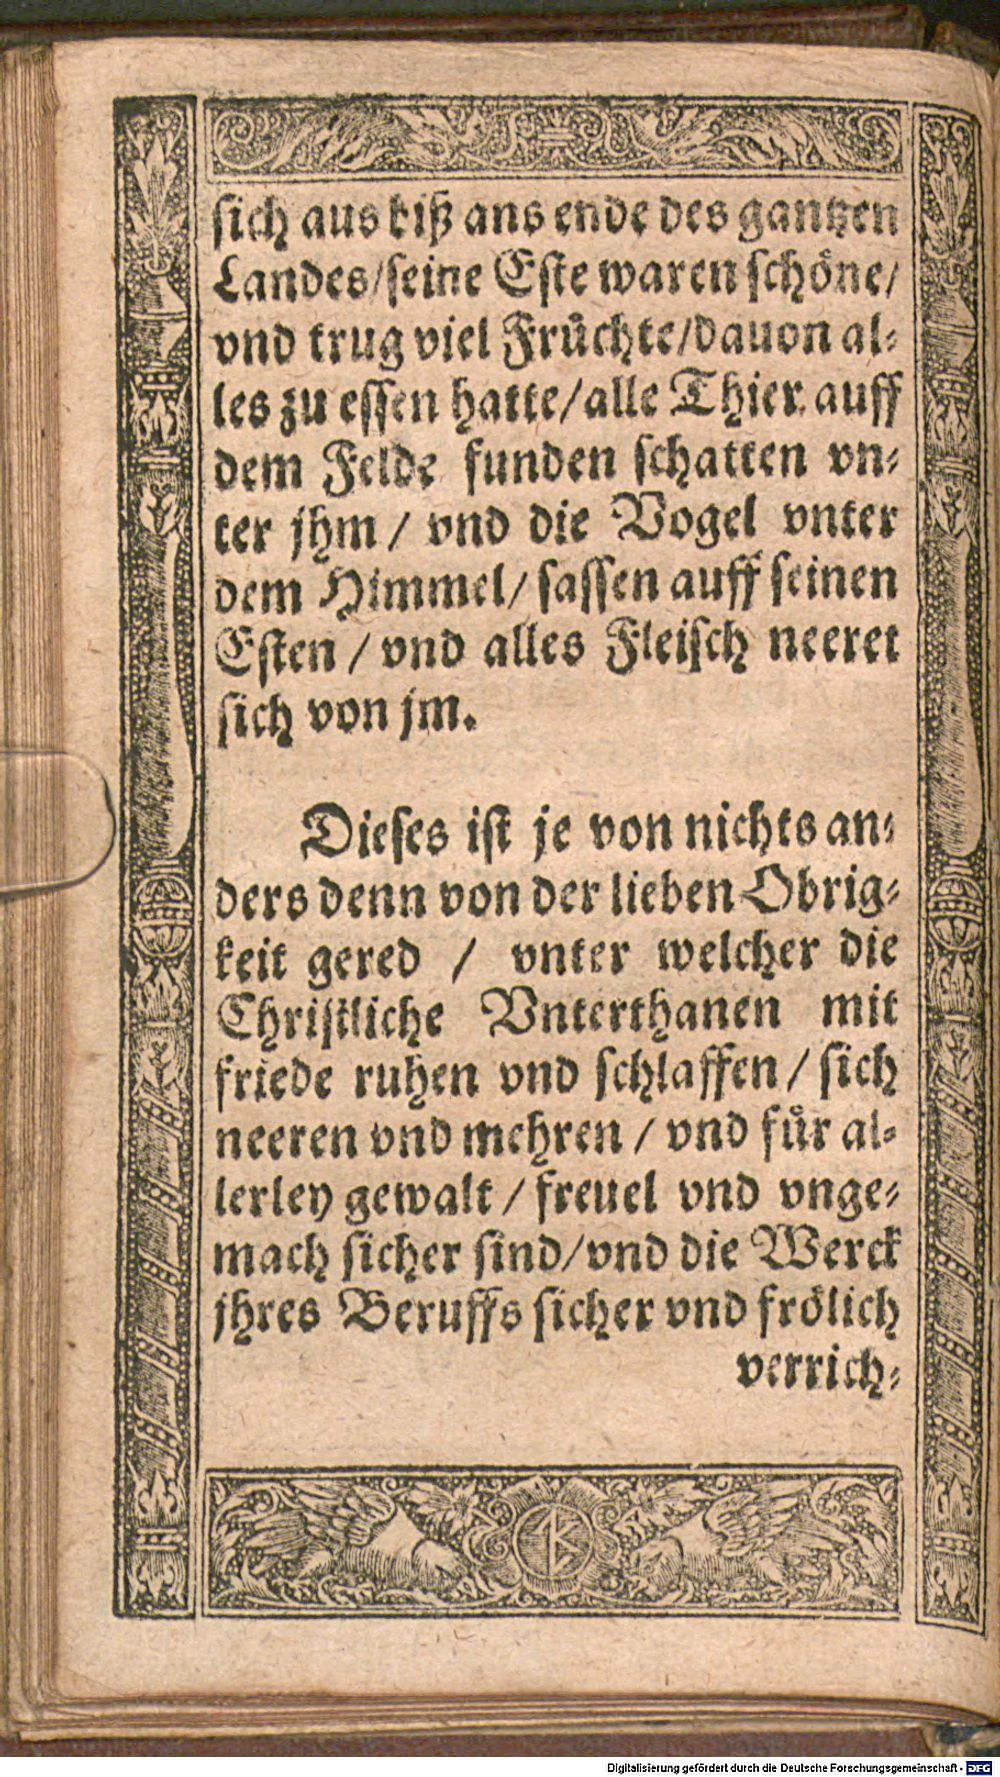 sich aus biß ans ende des gantzen
Landes/seine Este waren schöne/
vnd trug viel Früchte/dauon al-
les zu essen hatte/alle Thier auff
dem Felde funden schatten vn-
ter jhm / vnd die Vogel vnter
dem Himmel/ sassen auff seinen
Esten / vnd alles Fleisch neeret
sich von jm.
Dieses ist je von nichts an-
ders denn von der lieben Obrig-
keit gered / vnter welcher die
Christliche Vnterthanen mit
friede ruhen vnd schlaffen / sich
neeren vnd mehren / vnd für al-
lerley gewalt / freuel vnd vnge-
mach sicher sind/vnd die Werck
jhres Beruffs sicher vnd frölich
verrich-
Digitalisierung gefördert durch die Deutsche Forschungsgemeinschaft - DFG